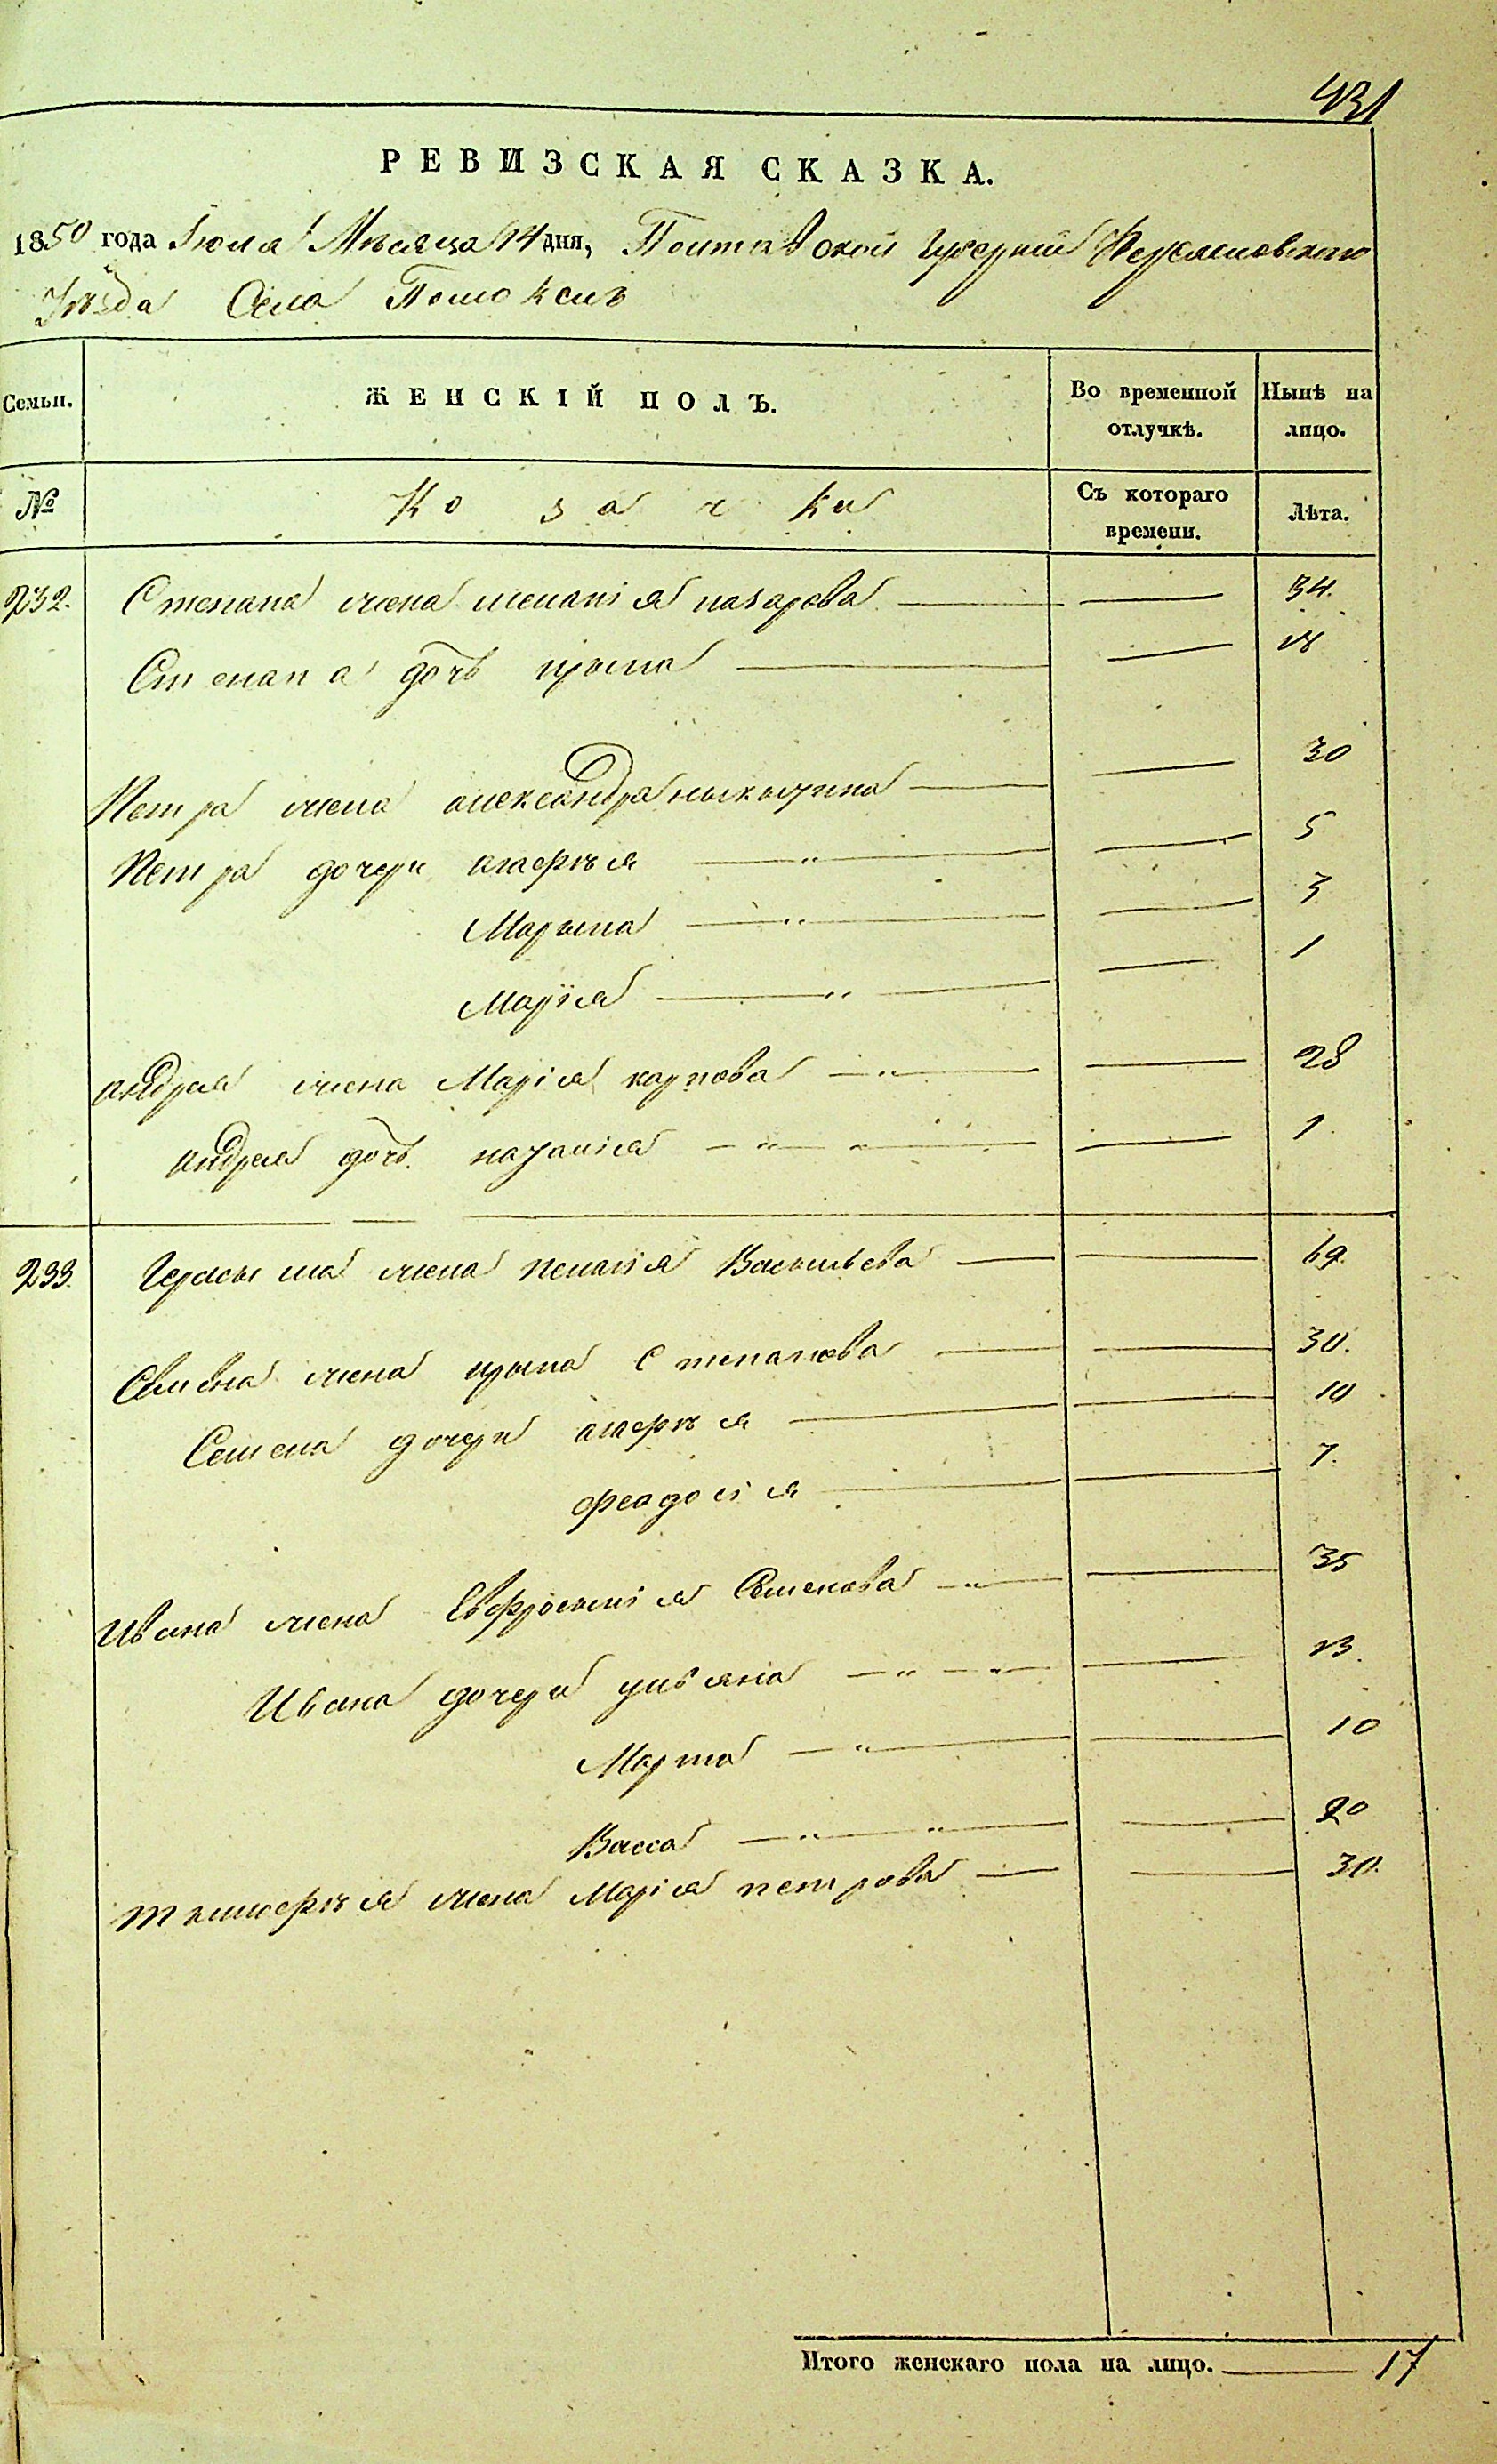 431
РЕВИЗСКАЯ СКАЗКА.
1850 года Іюля Мѣсяца 14 дня, Полтавской Губерніи Переяславскаго
Уѣзда Села Помоклъ
Семьи. ЖЕНСКІЙ ПОЛЪ. Во временной отлучкѣ. Нынѣ на лицо.
№ Козачки Съ котораго времени. Лѣта.
232. Степана жена меланія назарова 34.
Степана дочь ирына 18
Петра жена александра никытина 30
Петра дочери агафѣя 5
Марына 3
Маріїя 1
андрея жена Марія карпова 28
андрея дочь наталія 1
233. Герасыма жена пелагія Васильева 69.
Семена жена ирына Степанова 30.
Семена дочери агафѣя 10
феодосія 7.
Ивана жена Евфросынія Семенова 35
Ивана дочери улияна 13.
Марта 10
Васса 20
тымофѣя жена Марія петрова 30.
Итого женскаго пола на лицо. 17